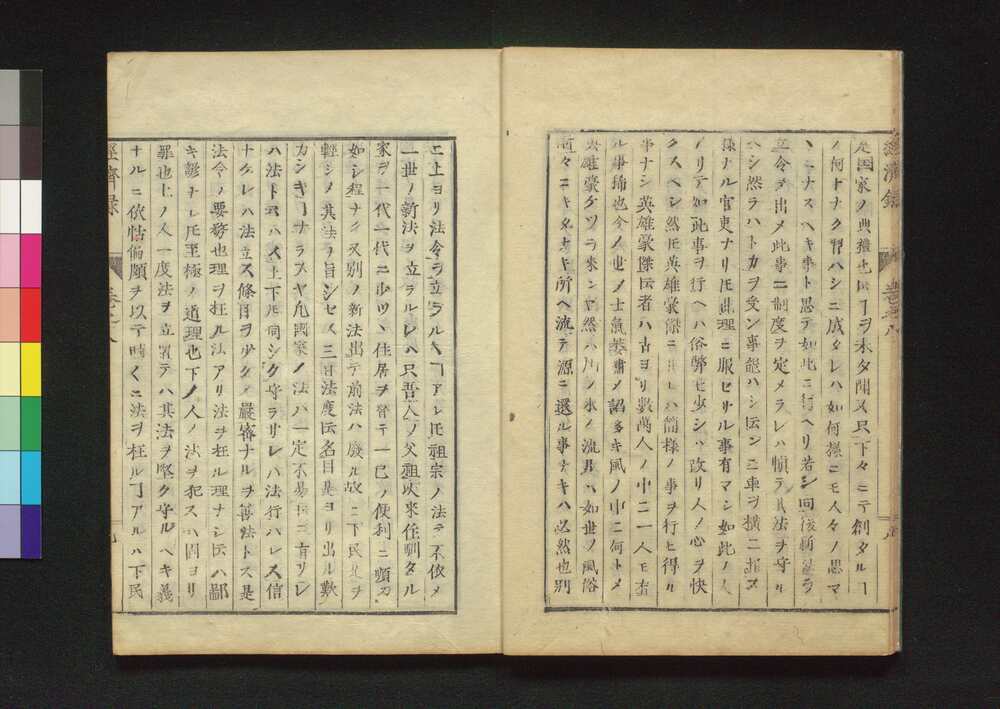 定國家ノ典禮也 ヿヲ未タ聞ス只下々ニテ創タル
ノ何トナク習ハシニ成タレハ如何樣ニモ人々ノ思マ
ヽニナスヘキ事ト思テ如此ニ行ヘリ若シ向後
立令ヲ出メ此事ニ制度ヲ定メラレハ愼テ其法ヲ守ル
ヘシ然ラハトカヲ受ン事 ハシト云ンニ車ヲ横ニ推ス
樣ナル官吏ナリ 此理ニ服セサル事有マシ如此ノ人
アリテ如此事ヲ行ヘハ俗弊モ少シハ改リ人ノ心ヲ快
クスヘシ然 英雄豪傑ニ ハ簡樣ノ事ヲ行ヒ得ル
事ナシ英雄豪傑 者ハ古ヨリ數萬人ノ中ニ一人モ有
ル事稀也今ノ世ノ士氣 ノ諂多キ風ノ中ニ何トメ
英雄豪 ラ來ンヤ然ハ川ノ水ノ流 如世ノ風俗
漸々ニキタナキ所ヘ流テ源ニ還ル事ナキハ必然也別
經濟錄 卷之八
ニ上ヨリ法令ヲ立ラルヽヿアレ 祖宗ノ法ニ不依メ
一世ノ新法ヲ立ラルレハ只吾人ノ父祖以來住馴タル
家ヲ一代一代ニ少ツヽ住居ヲ替テ一己ノ便利ニ順カ
如シ程ナク又別ノ新法出テ前法ハ廢ル故ニ下民是ヲ
輕シメ其法ヲ旨シセス三日法度 名目是ヨリ出ル歎
カシキヿナラスヤ凡國家ノ法ハ一定不易 ニ有リレ
ハ法ト ハス上下 同シク守ラサレハ法行ハレス信
ナケレハ法立ス條目ヲ少ク 嚴審ナルヲ善法トス是
法令ノ要務也理ヲ枉ル法アリ法ヲ枉ル理ナシ ハ鄙
キ諺ナレ 至極ノ道理也下ノ人ノ法ヲ犯スハ固ヨリ
罪也上ノ人一度法ヲ立置テハ其法ヲ堅ク守ルヘキ義
ナルニ依怙偏頗ヲ以テ時々ニ法ヲ枉ルヿアルハ下民
經濟錄 卷之八